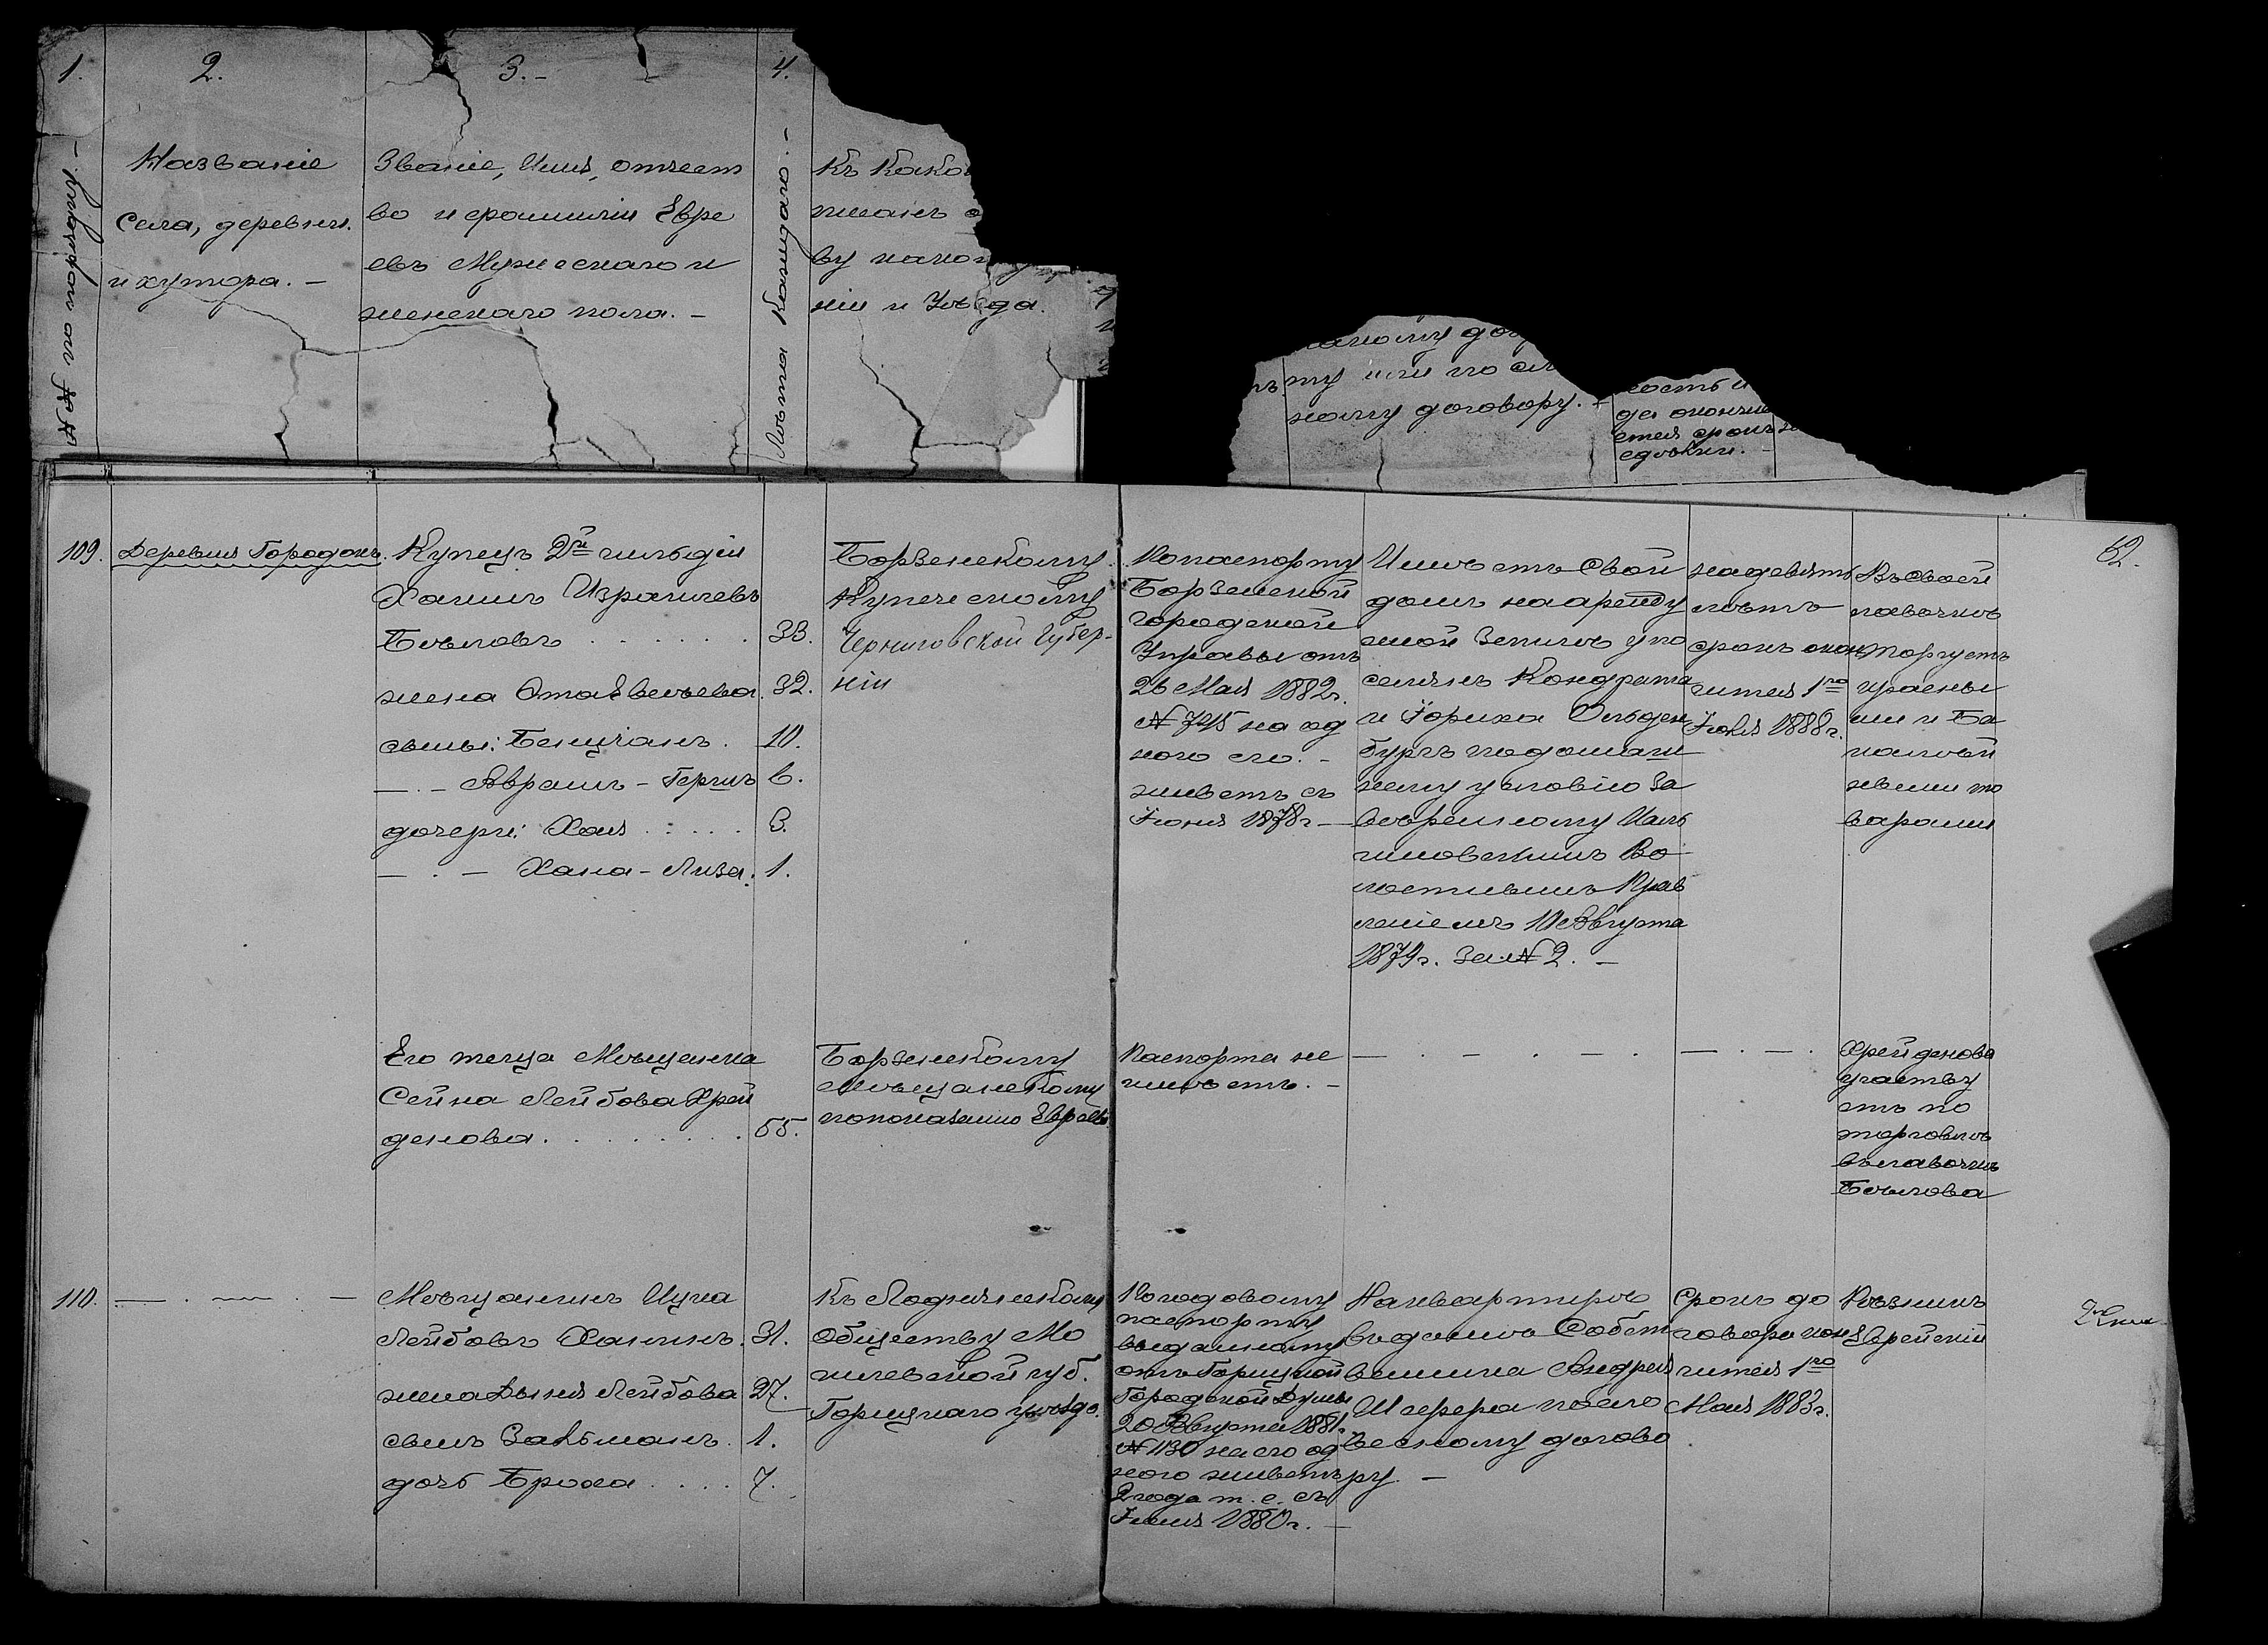 1.
2.
3.-
4.
№№ по порядку.
Названіе
Села, деревни
и хутора. –
Званіе, Имя, отчест
во и фамилія Евре
евъ Мужескаго и
женскаго пола. –
Лѣта каждаго. –
Къ како
ву како
ніи и Уѣзда.
ту или по сл
ному договору. –
ность и
да окончи
ется срокъ
сдѣлки. –
52.
109.
Деревня Городокъ.
Купецъ 2й гильдіи
Хаимъ Израилевъ
Бѣловъ . . . . . . . 33.
жена Эта Евсѣева. 32.
сыны: Бенціанъ. 10.
— · – Абрамъ-Гершъ 6.
дочери: Хая . . . . . 3.
— · – Хана-Лиза. 1.
Борзенскому
Купеческому
Черниговской Губер-
ніи
По паспорту
Борзенской
Городской
Управы отъ
26 Мая 1882г.
№ 745 на од
ного его. –
живетъ съ
Іюня 1878г –
Имѣетъ свой
домъ на аренду
мой Землѣ у по
селянъ Кондрата
и Юриха Ольден
бургъ по домаш
нему условію за
вѣренному
Во
лостнымъ Прав
леніемъ 10 Августа
1879г. за № 2. –
на девять
лѣтъ
срокъ окон
чится 1го
Іюля 1888г.
Въ своей
лавочкѣ
торгуетъ
красны
ми и Ба
калей
ными то
варами
Его теща Мѣщанка
Сейна Лейбова Хрей
денова . . . . . . . . . 55.
Борзенскому
Мѣщанскому
по показанію Евреевъ.
Паспорта не
имѣетъ. –
— . – . – . – .
— . – .
Хрейденова
участву
етъ по
торговлѣ
въ лавочкѣ
Бѣлова
110.
— . — . —
Мѣщанинъ Ицка
Лейбовъ Хайкинъ. 31.
жена Дыня Лейбова 27.
сынъ Залманъ. 1.
дочь Броха . . . . 7.
Къ Ляднянскому
Обществу Мо
гилевской губ.
Горецкаго уѣзда.
По годовому
паспорту
выданному
отъ Горецкой
Городской Думы
20 Августа 1881г.
№ 1130 на его од
ного живетъ
2 года т. е. съ
Іюня 1880г. –
На квартирѣ
въ домѣ Собст
венника Андрея
Шефера по сло
весному догово
ру. –
Срокъ до
говора кон
чится 1го
Мая 1883г.
Рѣзникъ
Еврейскій